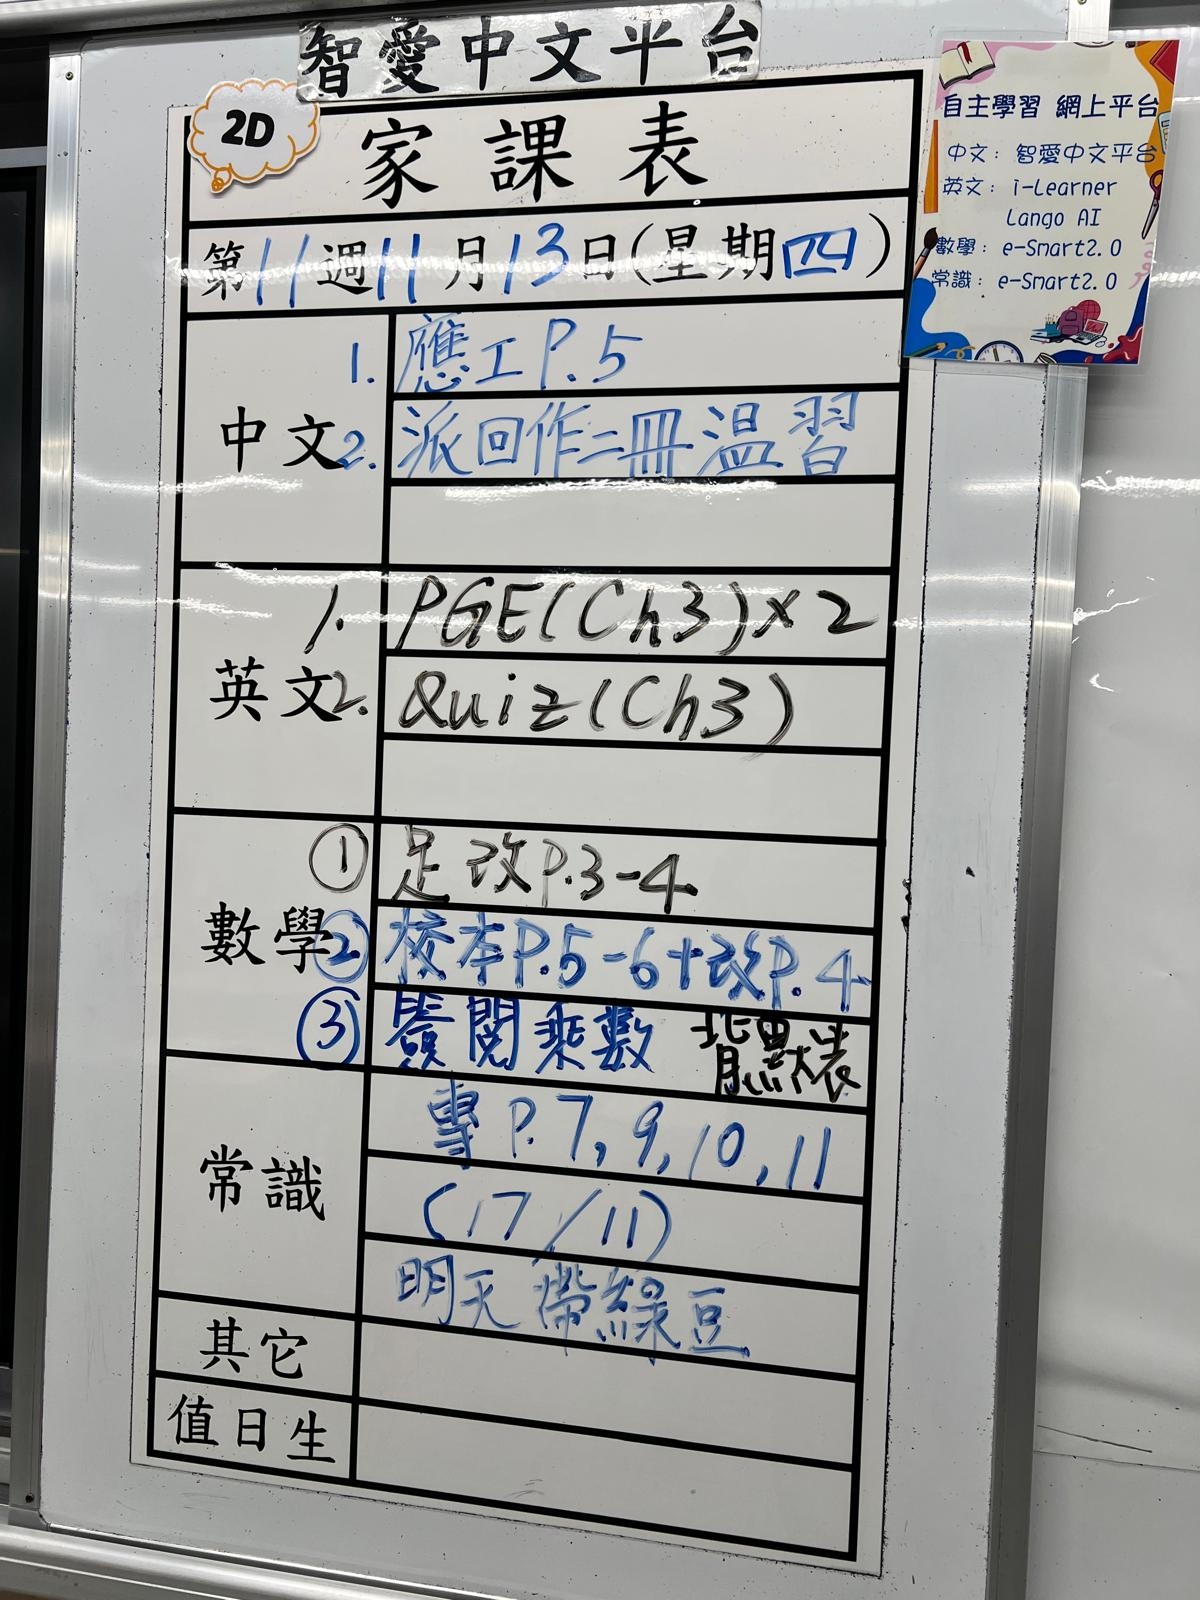 智愛中文平台
2D
家課表
第11週11月13日(星期四)
中文
1. 應工P.5
2. 派回作二冊溫習
英文
1. PGE(Ch3)x2
2. Quiz(Ch3)
數學
① 足改P.3-4
② 校本P.5-6+改P.4
③ 簽閱乘數 背點大表
常識
專P.7,9,10,11
(17/11)
明天帶綠豆
其它
值日生
自主學習 網上平台
中文：智愛中文平台
英文：i-Learner
Lango AI
數學：e-Smart2.0
常識：e-Smart2.0